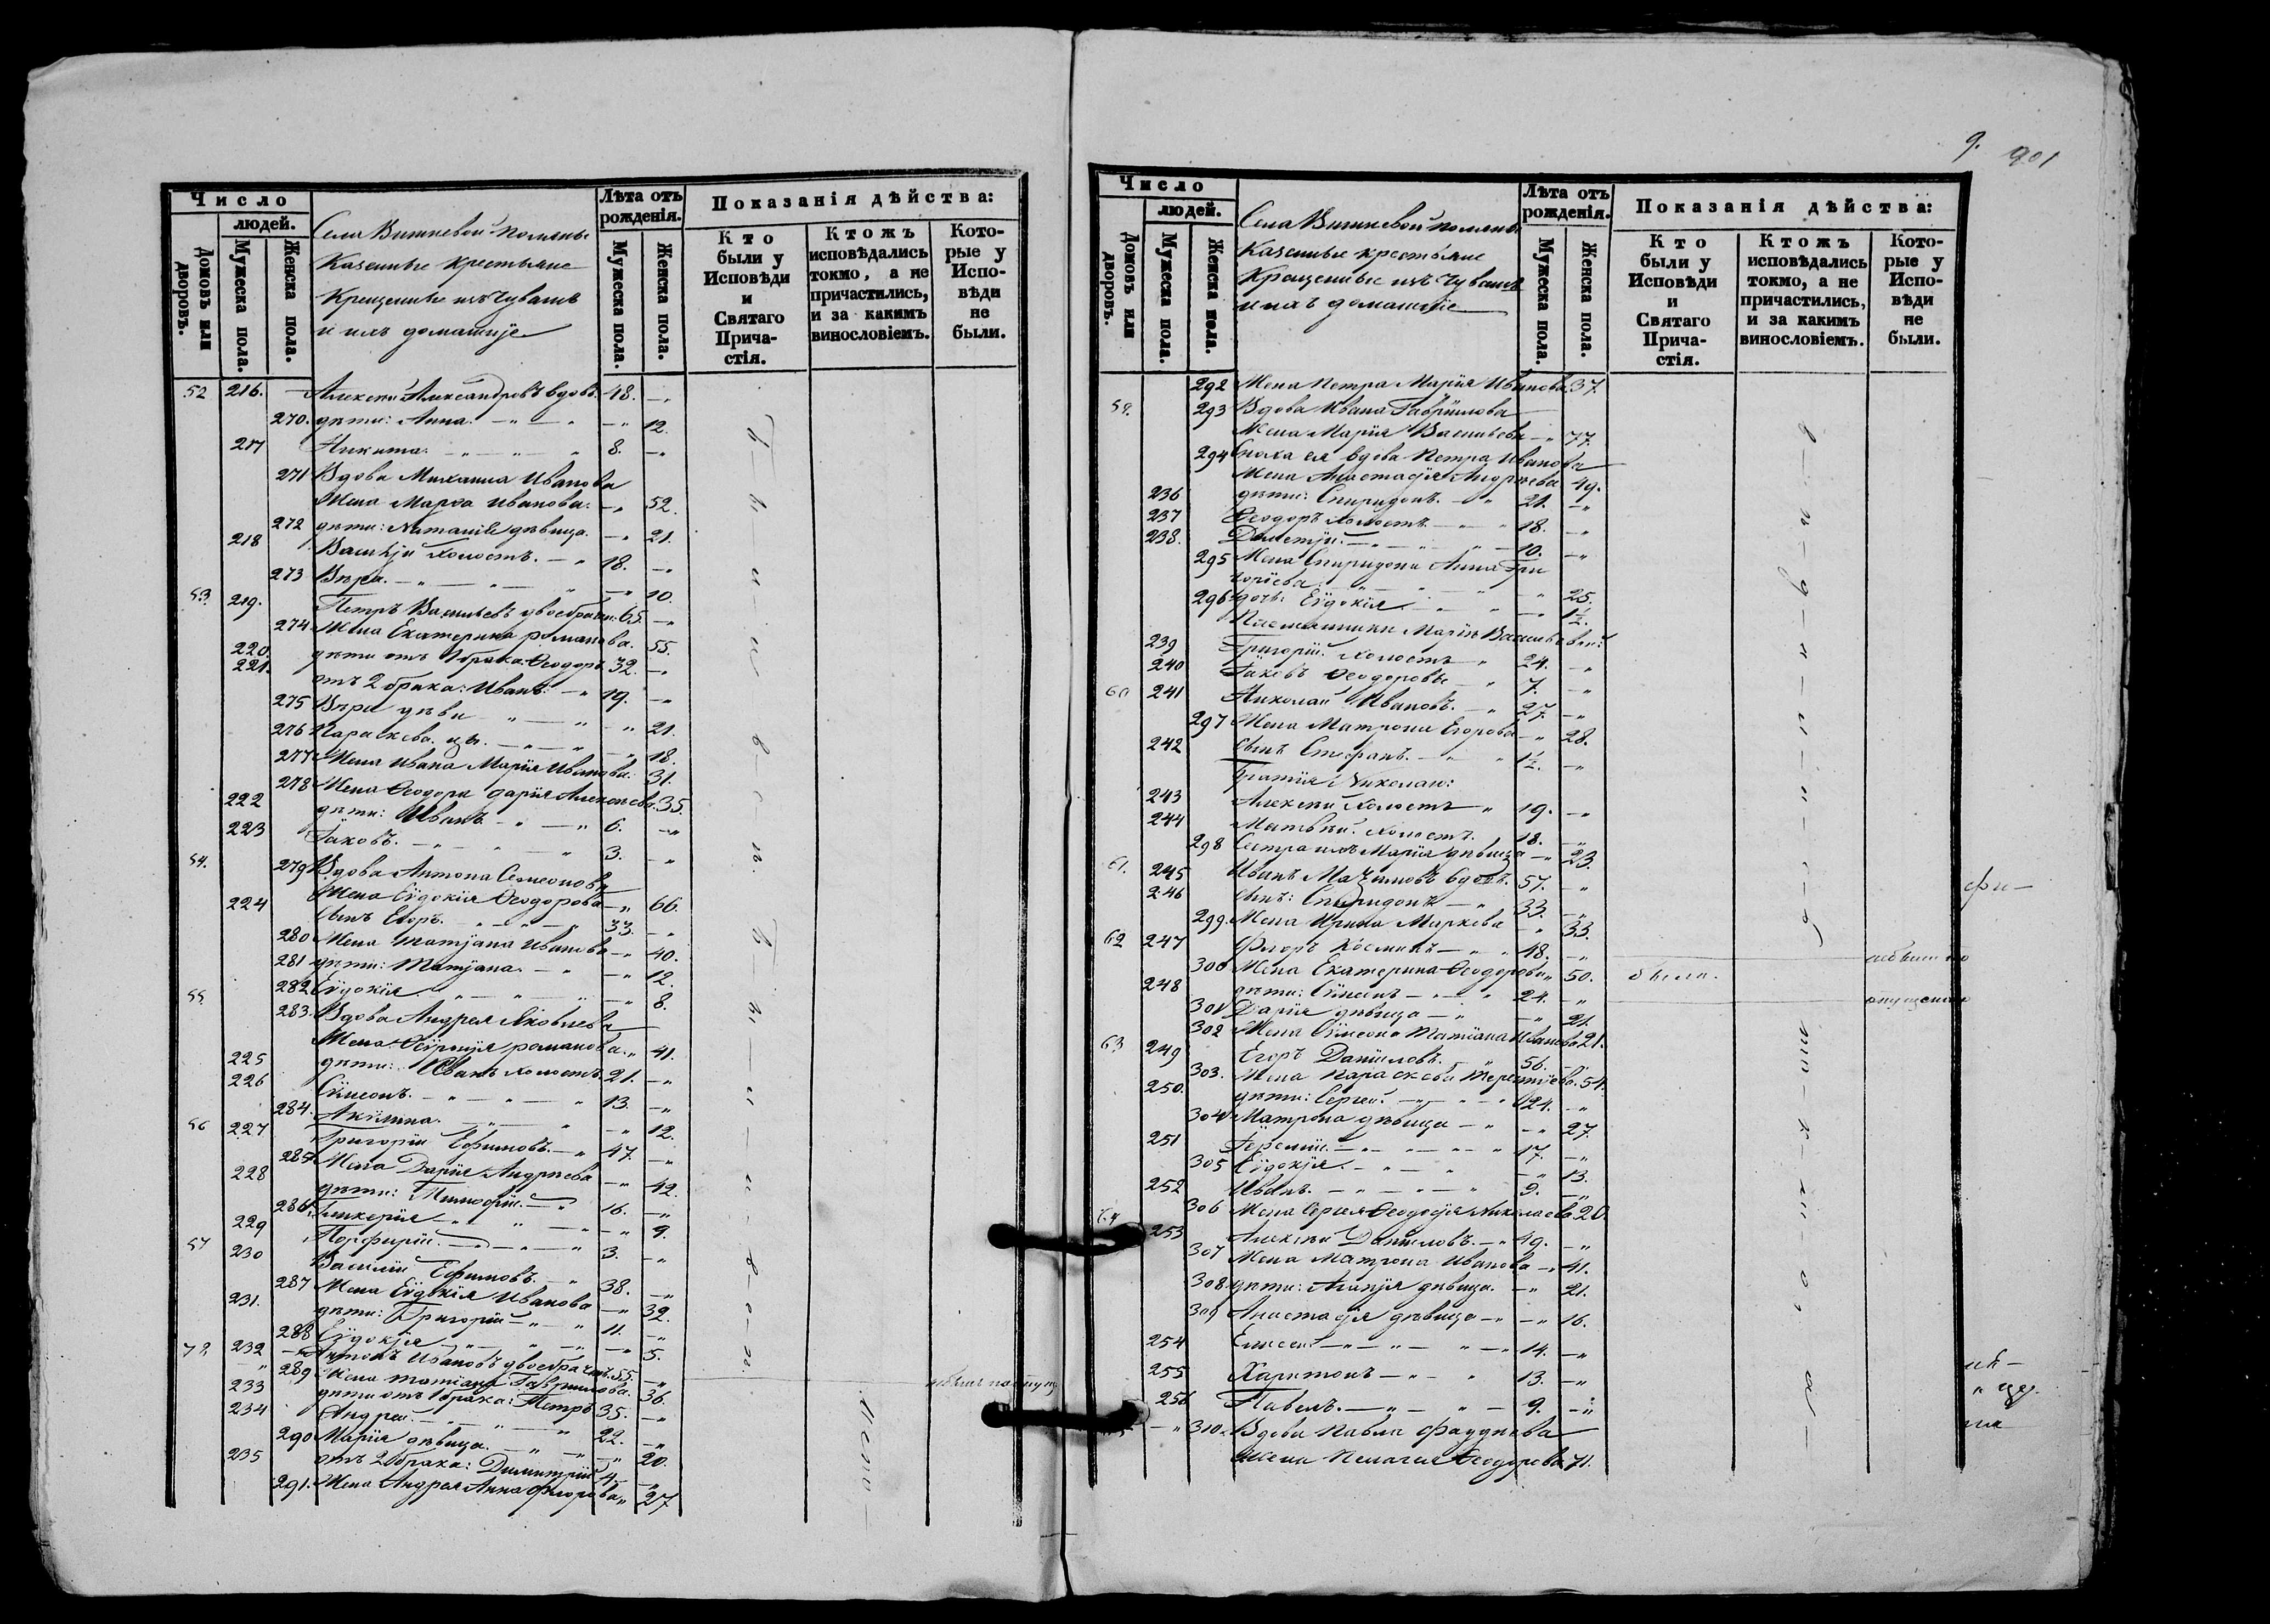 Число
людей.
Домовъ или дворовъ.
Мужеска пола.
Женска пола.
Села Вишневой поляны
Казенные крестьяне
Крещеные изъ Чувашъ
и ихъ домашніе
Лѣта отъ рожденія.
Мужеска пола.
Женска пола.
Показанія дѣйства:
Кто были у Исповѣди и Святаго Прича-стія.
Ктожъ исповѣдались токмо, а не причастились, и за какимъ винословіемъ.
Кото-рые у Испо-вѣди не были.
52 216. Алексѣй Александровъ вдовъ. 48. —„
270. дѣти: Анна. —„ 12.
217 Никита. 8. —„
271 Вдова Михаила Иванова
Жена Марѳа Иванова. —„ 52.
272 дѣти: Наталія дѣвица. —„ 21.
218 Василій холостъ. —„ 18. —„
273 Вѣра. —„ 10.
53. 219. Петръ Васильевъ двоебрачн. 65. —„
274 Жена Екатерина романова. 55.
220. дѣти отъ 1 брака: Ѳеодоръ 32. —„
221. отъ 2 брака: Иванъ. —„ 19. —„
275 Вѣра дѣви „ 21.
276 Параскева. ца. —„ 18.
277 Жена Ивана Марія Иванова. 31.
278 Жена Ѳеодора Дарія Алексѣева. 35.
222 дѣти: Иванъ —„ 6. —„
223 Іаковъ. —„ 3. —„
54. 279 Вдова Антона Семеонова
Жена Евдокія Ѳеодорова —„ 66.
224 сынъ Егоръ. —„ 33. —„
280 Жена татіана Иванова —„ 40.
281 дѣти: татіана. —„ 12.
282 Евдокія —„ 8.
55. 283. Вдова Андрея Яковлева
Жена Ѳ романова. „ 41.
225 дѣти: Иванъ холостъ. 21. —„
226 Сімеонъ. —„ 13. —„
284. Акилина. —„ 12.
56 227 Григорій Ефимовъ. —„ 47. —„
285 Жена Дарія Андреева —„ 42.
228 дѣти: Тимофій. —„ 16. —„
286 Гликерія —„ 9.
229 Порфирій. —„ 3. —„
57 230 Василій Ефимовъ. —„ 38. —„
287 Жена Евдокія Иванова —„ 32.
231. дѣти: Григорій —„ 11. —„
288 Евдокія —„ 5.
232 Антонъ Ивановъ двоебрачнъ. 55. —„
289 Жена татіана Гаврилова. 36.
233 дѣти отъ 1 брака: Петръ 35. —„
234 Андрей. —„ 22. —„
290 Марія дѣвица. —„ 20.
235 отъ 2 брака: Димитрій 4. —„
291. Жена Андрея Анна Фролова „ 27
9. 901
Число
людей.
Домовъ или дворовъ.
Мужеска пола.
Женска пола.
Села Вишневой поляны
Казенные крестьяне
Крещеные изъ Чувашъ
и ихъ домашніе
Лѣта отъ рожденія.
Мужеска пола.
Женска пола.
Показанія дѣйства:
Кто были у Исповѣди и Святаго Прича-стія.
Ктожъ исповѣдались токмо, а не причастились, и за какимъ винословіемъ.
Кото-рые у Испо-вѣди не были.
292 Жена Петра Марія Иванова. 37.
59. 293 Вдова Ивана Гаврилова
Жена Марія Васильева —„ 77.
294 Сноха ея вдова Петра Иванова
Жена Анастасія Андреева 49.
236 дѣти: Спиридонъ. —„ 21. —„
237 Ѳеодоръ холостъ —„ 18. —„
238. —„ 10. —„
295 Жена Спиридона Анна Гри
горіева. —„ 25.
296 дочь: Евдокія —„ 1½.
Племянники Маріи Васильевой:
239 Григорій холостъ „ 24. —„
240 Іаковъ Ѳеодоровы —„ 7. —„
60 241 Николай Ивановъ. —„ 27. —„
297 Жена Матрона Егорова —„ 28.
242 сынъ Стефанъ. —„ 1½. —„
Братія Николаю:
243 Алексѣй холостъ „ 19. —„
244 Матвѣй холостъ. 18. —„
298 Сестра ихъ Марія дѣвица —„ 23.
61. 245 Иванъ Мазимовъ вдовъ. 57. —„
246 сынъ: Спиридонъ —„ 33. —„
299. Жена Ирина Маркова —„ 33.
62 247 Флоръ Косминъ —„ 48. —„
300 Жена Екатерина Ѳеодорова „ 50. была.
248 дѣти: Сімеонъ —„ 24. —„
301 Дарія дѣвица —„ 21.
302 Жена Сімеона Татіана Иванова 21.
63 249 Егоръ Даниловъ. „ 56. —„
303. Жена Параскева Терентіева. 54.
250. дѣти: Сергей. —„ 24. —„
304 Матрона дѣвица —„ 27.
251 —„ 17. —„
305 Евдокія. —„ 13.
252 Иванъ. —„ 9. —„
306 Жена Сергея Ѳеодосія Николаева 20.
64 253 Алексѣй Даниловъ. —„ 49. —„
307 Жена Матрона Иванова —„ 41.
308 дѣти: Агапія дѣвица. —„ 21.
309 Анастасія дѣвица —„ 16.
254 Елисей —„ 14. —„
255 Харитонъ —„ 13. —„
256 Павелъ. —„ 9. —„
—„ 310. Вдова Павла Фаддѣева
Жена Пелагея Ѳеодорова 71.